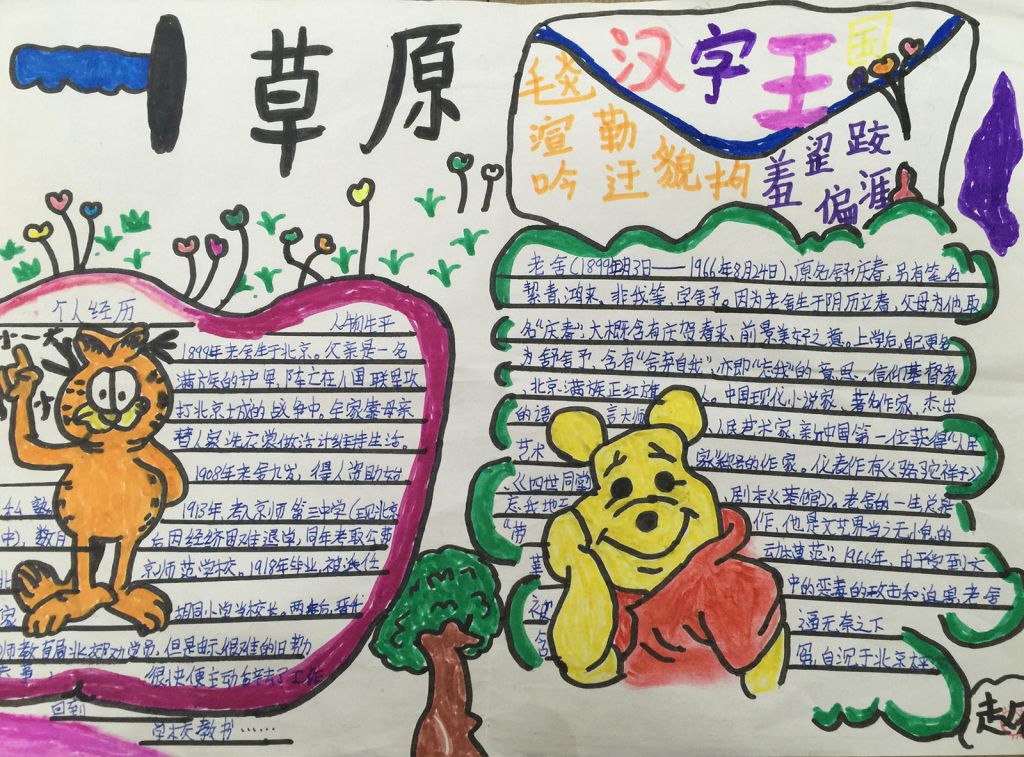 草原
汉字王国
毛 渲 勒
吟 迂 貌 拘
羞 罢 跤
偏 涯
个人经历
人物生平
1899年老舍生于北京。父亲是一名
满族的护军,阵亡在八国联军攻
打北京城的战争中。全家靠母亲
替人家洗衣裳做活计维持生活。
1908年老舍九岁,得人资助始
入私塾。1913年,考入京师第三中学(现北京
中),数月后因经济困难退学,同年考取公费
北京师范学校。1918年毕业,被派任
胡同小学当校长。两年后,晋升
师教育局北郊劝学员,但是由于很难的日
很快便主动辞去了工作
回到
学校教书……
老舍(1899年2月3日——1966年8月24日),原名舒庆春,另有笔名
絜青、鸿来、非我等,字舍予。因为老舍生于阴历立春,父母为他取
名“庆春”,大概含有庆贺春来、前景美好之意。上学后,自己更名
为舒舍予,含有“舍弃自我”,亦即“忘我”的意思。信仰基督教
北京满族正红旗人。中国现代小说家、著名作家,杰出
的语言大师、人民艺术家,新中国第一位获得“人民
艺术家”称号的作家。代表作有《骆驼祥子》
、《四世同堂》、剧本《茶馆》。老舍的一生,总是
忘我地工作,他是文艺界当之无愧的
“劳动模范”。1966年,由于受到文
中的恶毒的攻击和迫害,老舍
被逼无奈之下
含冤自沉于北京